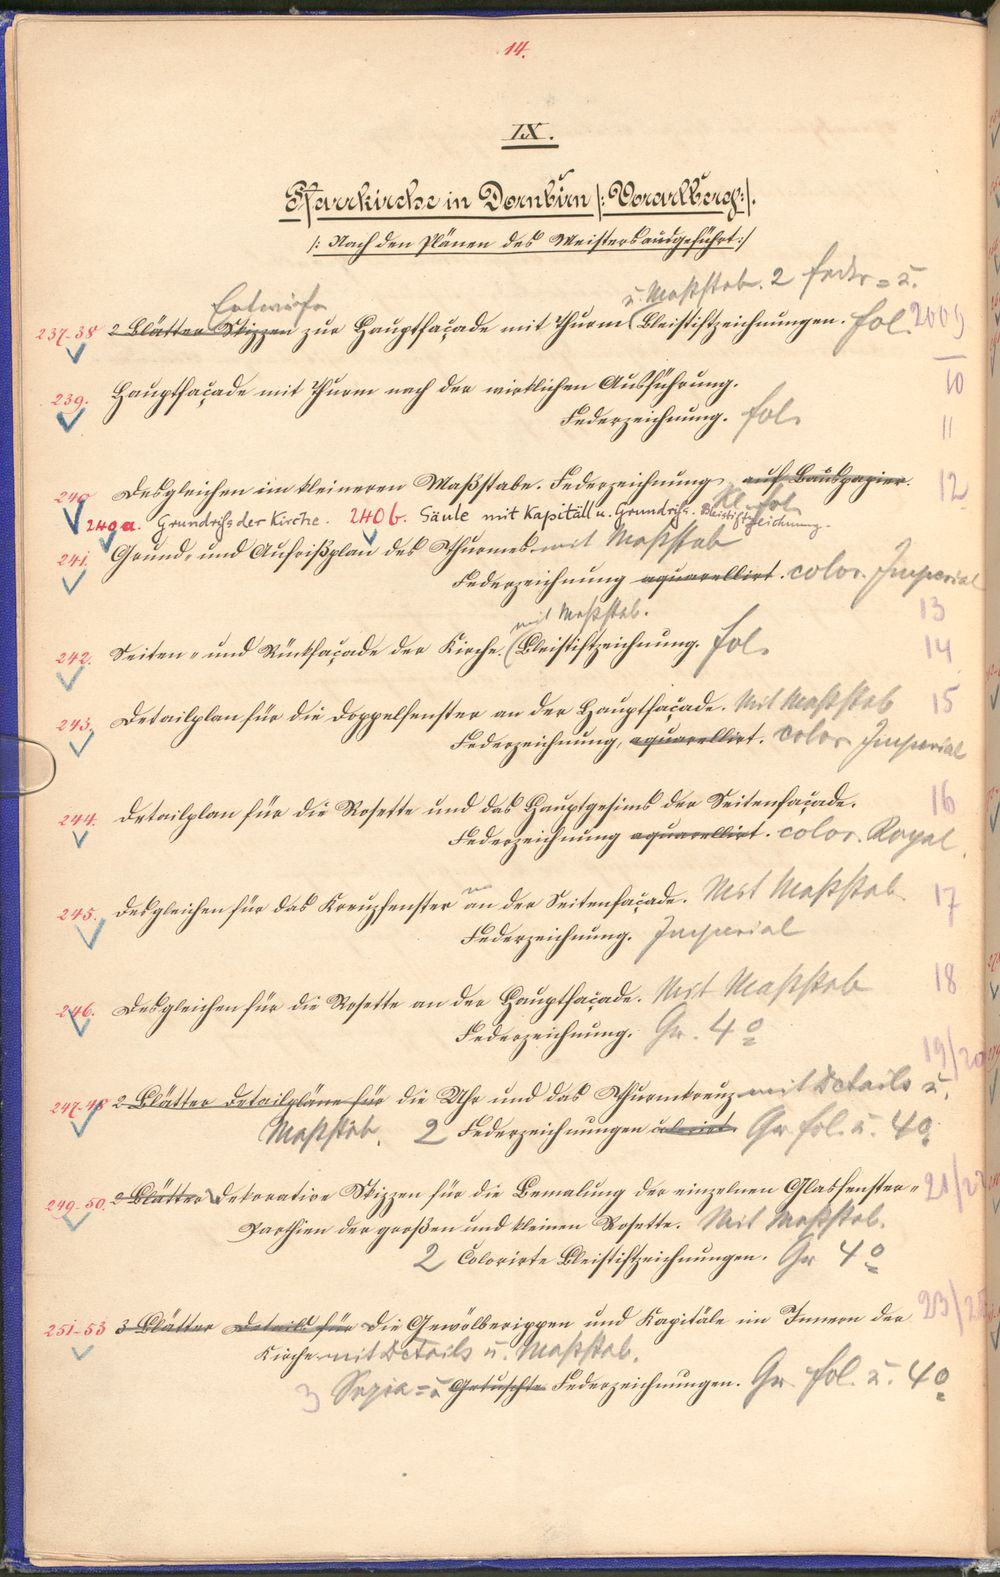 14.
IX.
Pfarrkirche in Dornbirn /: Vorarlberg :/.
/: Nach den Plänen des Meisters ausgeführt :/
u. Maßstab. 2 Feder = u.
Entwürfe
237-38 2 Blätter Skizzen zur Hauptfaçade mit Thurm (Bleistiftzeichnungen. fol. 2009
239. Hauptfaçade mit Thurm nach der wirklichen Ausführung. 10
Federzeichnung. fol. 11
240 Desgleichen im kleineren Maßstabe. Federzeichnung auf Bauspapier. 12
Kl. fol
240a. Grundriß der Kirche. 240b. Säule mit Kapitäll u. Grundriß. Bleistiftzeichnung.
241. Grund- und Aufrißplan des Thurmes mit Maßstab
Federzeichnung aquarellirt. color. Imperial
13
mit Maßstab.
242. Seiten- und Rückfaçade der Kirche. (Bleistiftzeichnung. fol. 14
243. Detailplan für die Doppelfenster an der Hauptfaçade. Mit Maßstab 15
Federzeichnung, aquarellirt. color Imperial
244. Detailplan für die Rosette und das Hauptgesims der Seitenfaçade. 16
Federzeichnung aquarellirt. color. Royal
245. Desgleichen für das Kreuzfenster an der Seitenfaçade. Mit Maßstab 17
Federzeichnung. Imperial
246. Desgleichen für die Rosette an der Hauptfaçade. Mit Maßstab 18
Federzeichnung. Gr. 4º
19/20
247-48 2 Blätter Detailpläne für die Uhr und das Thurmkreuz mit Details u.
Maßstab. 2 Federzeichnungen colorirt. Gr fol. u. 4º
249-50. 2 Blätter Dekorative Skizzen für die Bemalung der einzelnen Glasfenster= 21/22
Parthien der großen und kleinen Rosette. Mit Maßstab.
2 Colorirte Bleistiftzeichnungen. Gr 4º
251-53 3 Blätter Details für die Gewölberippen und Kapitäle im Innern der 23/25
Kirche mit Details u. Maßstab.
3 Sepia = u Getuschte Federzeichnungen. Gr. fol. u. 4º